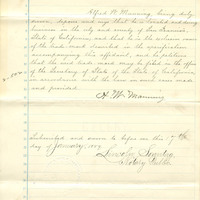 Alfred W. Manning, being duly
sworn, deposes and says that he is [a] resident and doing
business in the city and county of San Francisco,
State of California, and that he is the
of the trade mark described in the specification
accompanying this affidavit, and he petitions
that the said trade mark may be filed in the office
of the Secretary of State of the State of California,
in accordance with the law in such cases made
and provided.
A. W. Manning
Subscribed and sworn to before me this 17th
day of January,
Notary Public